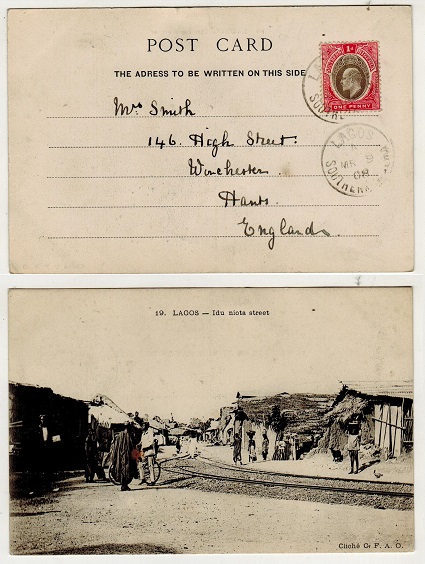 POST CARD
THE ADRESS TO BE WRITTEN ON THIS SIDE
1d
ONE PENNY
Mrs Smith
146. High Street.
Winchester
Hants.
England
LAGOS
MR 9
08
SOUTHERN
19. LAGOS — Idu niota street
Cliché Ce F. A. O.